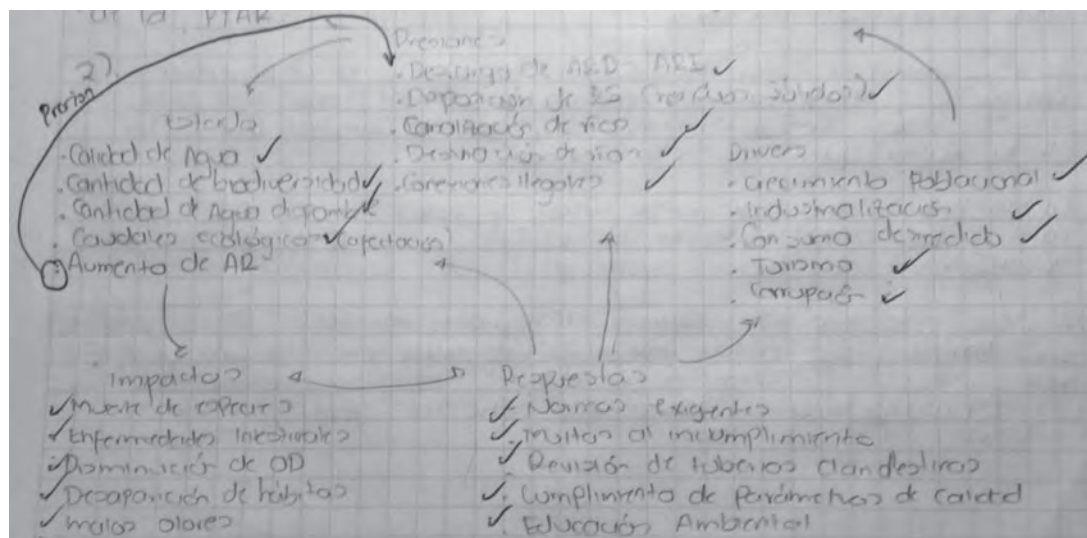 de la PTAR
2).
Presion
Presiones
. Descarga de ARD - ARI
. Disposición de RS (residuos sólidos)
. Canalización de rios
. de rios
. Conexiones ilegales
Estado
. Calidad de Agua
. Cantidad de biodiversidad
. Cantidad de Agua disponible
. Caudales ecológicos (afectación)
. Aumento de AR
Drivers
. Crecimiento Poblacional
. Industrialización
. Consumo desmedido
. Turismo
. Corrupción
Impactos
Muerte de especies
Enfermedades Intestinales
. Disminución de OD
Desaparición de hábitas
malos olores
Respuestas
. Normas exigentes
. Multas al incumplimiento
. Revisión de tuberias clandestinas
. Cumplimiento de Parámetros de calidad
. Educación Ambiental